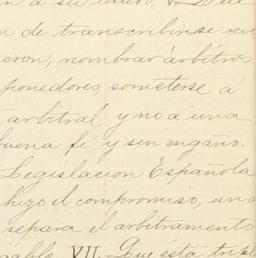 n de transcribirse
eron, nombrar árbitros
ponedores, someterse á
arbitral y no á una
buena fé y sin engaño.
Legislacion Española
hizo el compromiso, un
separa el arbitramento
VII. Que ésta